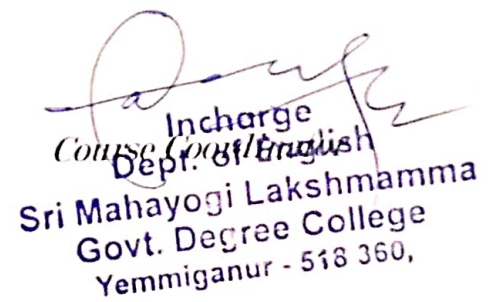 Incharge
Course Coordinator
Dept. of English
Sri Mahayogi Lakshmamma
Govt. Degree College
Yemmiganur - 518 360,